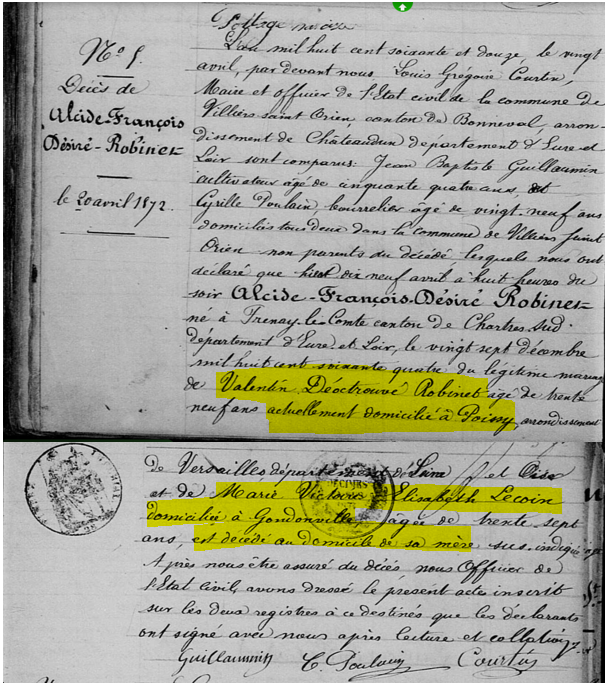 N.º 5.
Décès de
Alcide-François
Désiré-Robinet
le 20 avril 1872.
L'an mil huit cent soixante et douze, le vingt
avril, par devant nous, Louis Grégoire Courtin,
Maire et officier de l'Etat civil de la commune de
Villiers saint Orien canton de Bonneval, arron-
dissement de Châteaudun département d'Eure et
Loir sont comparus: Jean Baptiste Guillaumin
cultivateur âgé de cinquante quatre ans, et
Cyrille Poulain, bourrelier âgé de vingt neuf ans
domiciliés tous deux dans la commune de Villiers Saint
Orien non parents du décédé, lesquels nous ont
déclaré que hier dix neuf avril à huit heures du
soir Alcide-François-Désiré Robinet
né à Frenay-le-Comte canton de Chartres sud.
département d'Eure et Loir, le vingt sept décembre
mil huit cent soixante quatre du légitime mariage
de Valentin Déoctrouvé Robinet âgé de trente
neuf ans actuellement domicilié à Poissy, arrondissement
de Versailles département de Seine et Oise
et de Marie Victoire Elisabeth Lecoin
domiciliée à Gondonville âgée de trente sept
ans, est décédé au domicile de sa mère sus-indiqué
Après nous être assuré du décès, nous Officier de
l'Etat civil, avons dressé le présent acte inscrit
sur les deux registres à ce destinés que les déclarants
ont signé avec nous après lecture et collation.
Guillaumin C. Poulain Courtin